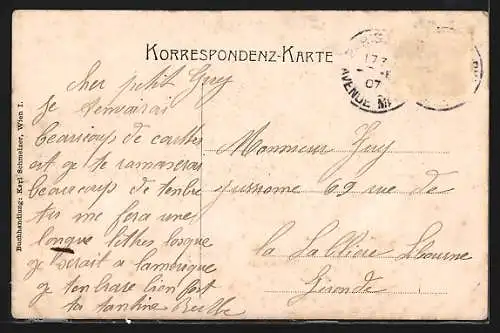 KORRESPONDENZ-KARTE
cher petit Guy
je t'envairai
beaucoup de cartes
et je te ramanerai
beaucoup de tenbre
tu me fera une
longue lettres losque
je serait a lamerique
je tenbrase bien fort
ta tantine Berthe
Monsieur Guy
69 rue de
la Sablière Libourne
Gironde
17
07
AVENUE
Buchhandlung: Karl Schmelzer, Wien I.